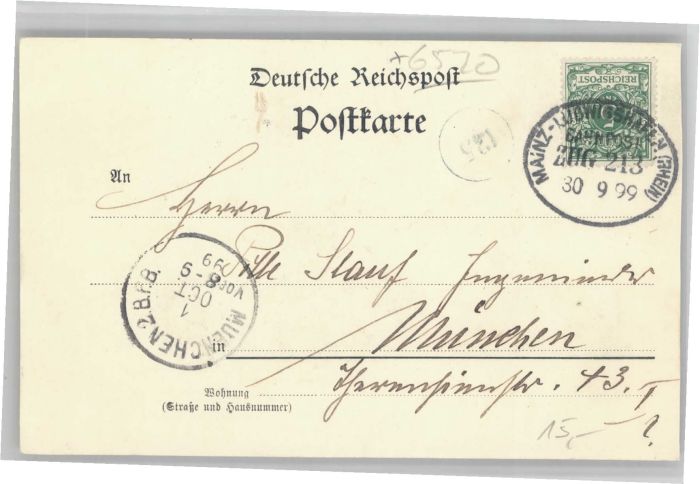 +6520
Deutsche Reichspost
Postkarte
REICHSPOST
MAINZ-LUDWIGSHAFEN (RHEIN)
BAHNPOST
ZUG 213
30 9 99
135
An
Herrn
Stauf Ingenieur
in München
Theresienstr. 43. I
MUENCHEN 2 B.f.B.
1
OCT
Vor 8-9
99
Wohnung
(Straße und Hausnummer)
15,-